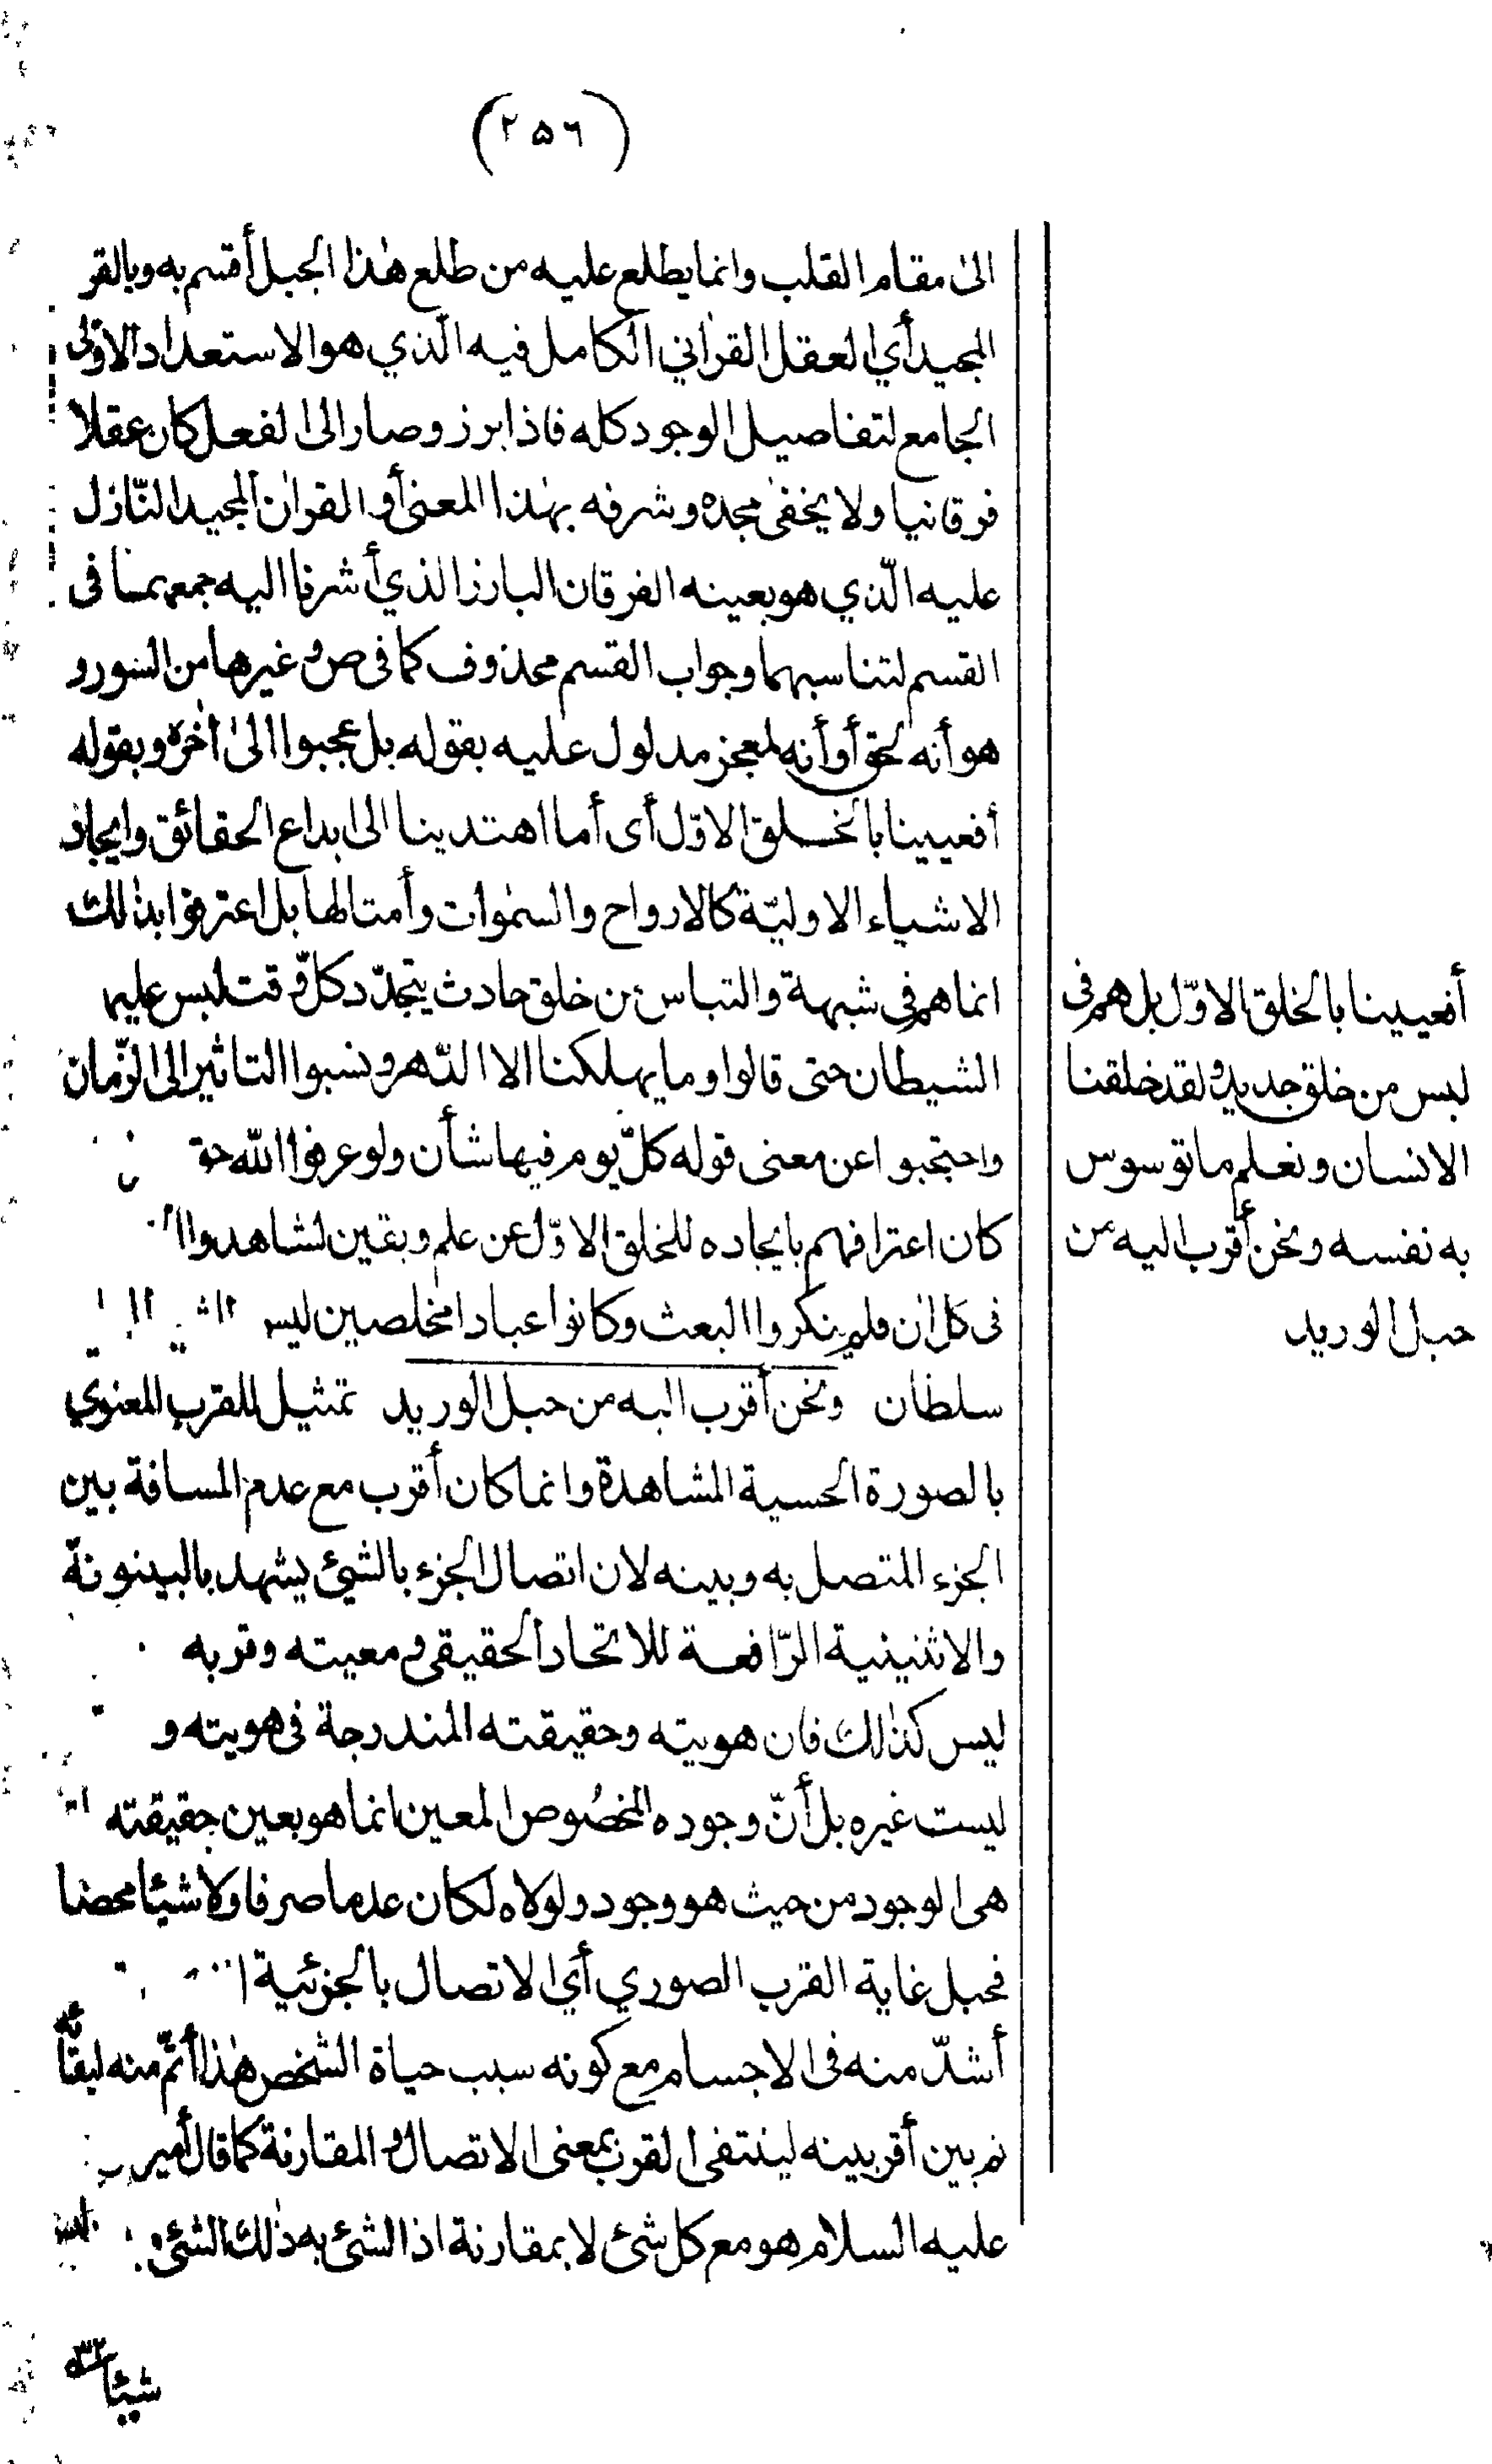 (٢٥٦)
الىٰ مقام القلب وانما يطلع عليه من طلع هٰذا الجبل أقسم به وبالقر
المجيد أي العقل القراٰني الكامل فيه الّذي هو الاستعداد الاوّلى
الجامع لتفاصيل الوجود كله فاذا برز وصار الى الفعل كان عقلا
فرقانيا ولا يخفىٰ مجده وشرفه بهٰذا المعنىٰ أو القراٰن المجيد النّازل
عليه الّذي هو بعينه الفرقان البارز الذي أشرنا اليه جمعهما فى
القسم لتناسبهما وجواب القسم محذوف كما فى ص وغيرها من السور و
هو أنه لحق أو أنه لمعجز مدلول عليه بقوله بل عجبوا الىٰ اٰخره وبقوله
أفعيينا بالخلق الاوّل أى أما اهتدينا الى ابداع الحقائق وايجاد
الاشياء الاوليّة كالارواح والسمٰوات وأمثالها بل اعترفوا بذٰلك
انما هم في شبهة والتباس من خلق حادث يتجدّد كلّ وقت لبس عليهم
الشيطان حتى قالوا وما يهلكنا الا الدّهر ونسبوا التاثير الى الزّمان
واحتجبوا عن معنى قوله كلّ يوم فيها شأن ولو عرفوا الله حق
كان اعترافهم بايجاده للخلق الاوّل عن علم ويقين لشاهدوا
فى كل اٰن فلم ينكروا البعث وكانوا عبادا مخلصين ليس
سلطان ونحن أقرب اليه من حبل الوريد تمثيل للقرب المعنوي
بالصورة الحسية المشاهدة وانما كان أقرب مع عدم المسافة بين
الجزء المتصل به وبينه لان اتصال الجزء بالشيئ يشهد بالبينونة
والاثنينية الرّافعة للاتحاد الحقيقى ومعيته وقربه
ليس كذٰلك فان هويته وحقيقته المندرجة فى هويته و
ليست غيره بل أنّ وجوده المخصُوص المعين انما هو بعين حقيقته
هى الوجود من حيث هو وجود ولولاه لكان عدما صرفا ولا شيئا محضا
فحبل غاية القرب الصوري أي الاتصال بالجزئية
أشدّ منه فى الاجسام مع كونه سبب حياة الشخص هٰذا أتمّ منه
ثم بين أقربيته لينتفى القرب بمعنى الاتصال والمقارنة كما قال أمير
عليه السلام هو مع كل شئ لا بمقارنة اذ الشئ به ذٰلك الشئ
شيئا
أفعيينا بالخلق الاوّل بل هم فى
لبس من خلق جديد ولقد خلقنا
الانسان ونعلم ما توسوس
به نفسه ونحن أقرب اليه من
حبل الوريد